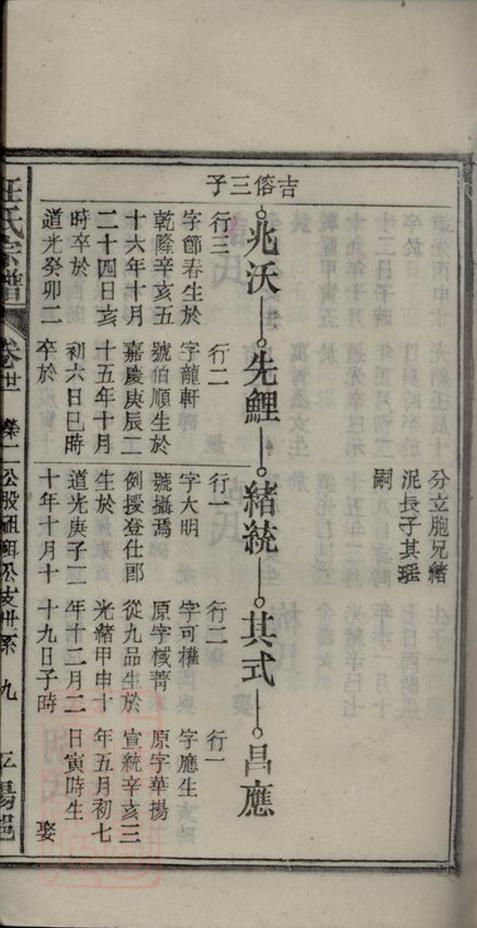 分立胞兄緒
泥長子其瑶
嗣
吉傛三子
兆沃
先鯉
緒統
其式
昌應
行三
字節春生於
乾隆辛亥五
十六年十月
二十四日亥
時卒於
道光癸卯二
行二
字龍軒
號伯順生於
嘉慶庚辰二
十五年十月
初六日巳時
卒於
行一
字大明
號攝焉
例授登仕郎
生於
道光庚子二
十年十月十
行二
字可權
原字棫菁
從九品生於
光緒甲申十
年十二月二
十九日子時
行一
字應生
原字華揚
宣統辛亥三
年五月初七
日寅時生
娶
汪氏宗譜
卷廿
九